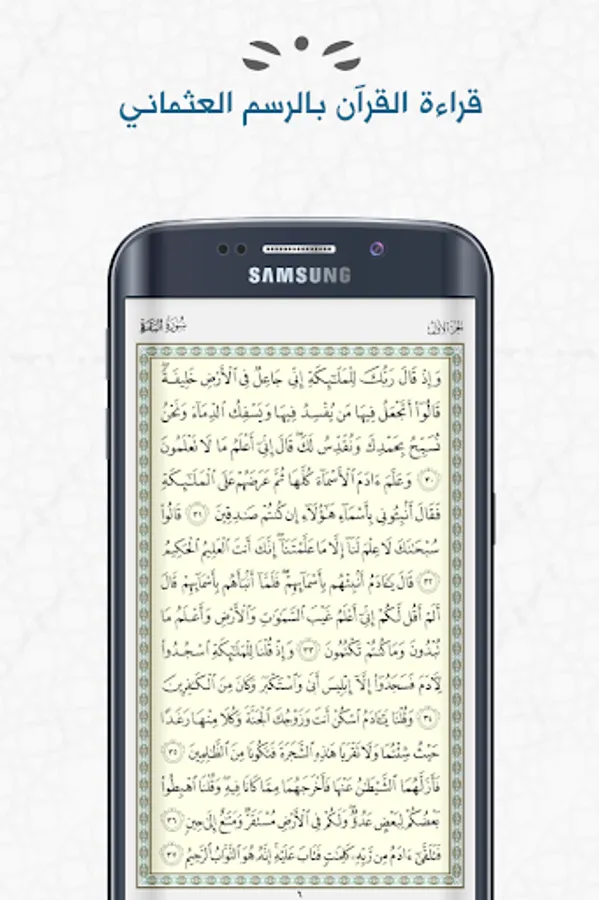 قراءة القرآن بالرسم العثماني
SAMSUNG
الجزء الأول
سُورَةُ البَقَرَةِ
وَإِذْ قَالَ رَبُّكَ لِلْمَلَٰٓئِكَةِ إِنِّي جَاعِلٌ فِي ٱلْأَرْضِ خَلِيفَةً ۖ
قَالُوٓا۟ أَتَجْعَلُ فِيهَا مَن يُفْسِدُ فِيهَا وَيَسْفِكُ ٱلدِّمَآءَ وَنَحْنُ
نُسَبِّحُ بِحَمْدِكَ وَنُقَدِّسُ لَكَ ۖ قَالَ إِنِّىٓ أَعْلَمُ مَا لَا تَعْلَمُونَ
٣٠ وَعَلَّمَ ءَادَمَ ٱلْأَسْمَآءَ كُلَّهَا ثُمَّ عَرَضَهُمْ عَلَى ٱلْمَلَٰٓئِكَةِ
فَقَالَ أَنۢبِـُٔونِى بِأَسْمَآءِ هَٰٓؤُلَآءِ إِن كُنتُمْ صَٰدِقِينَ ٣١ قَالُوا۟
سُبْحَٰنَكَ لَا عِلْمَ لَنَآ إِلَّا مَا عَلَّمْتَنَآ ۖ إِنَّكَ أَنتَ ٱلْعَلِيمُ ٱلْحَكِيمُ
٣٢ قَالَ يَٰٓـَٔادَمُ أَنۢبِئْهُم بِأَسْمَآئِهِمْ ۖ فَلَمَّآ أَنۢبَأَهُم بِأَسْمَآئِهِمْ قَالَ
أَلَمْ أَقُل لَّكُمْ إِنِّىٓ أَعْلَمُ غَيْبَ ٱلسَّمَٰوَٰتِ وَٱلْأَرْضِ وَأَعْلَمُ مَا
تُبْدُونَ وَمَا كُنتُمْ تَكْتُمُونَ ٣٣ وَإِذْ قُلْنَا لِلْمَلَٰٓئِكَةِ ٱسْجُدُوا۟
لِـَٔادَمَ فَسَجَدُوٓا۟ إِلَّآ إِبْلِيسَ أَبَىٰ وَٱسْتَكْبَرَ وَكَانَ مِنَ ٱلْكَٰفِرِينَ
٣٤ وَقُلْنَا يَٰٓـَٔادَمُ ٱسْكُنْ أَنتَ وَزَوْجُكَ ٱلْجَنَّةَ وَكُلَا مِنْهَا رَغَدًا
حَيْثُ شِئْتُمَا وَلَا تَقْرَبَا هَٰذِهِ ٱلشَّجَرَةَ فَتَكُونَا مِنَ ٱلظَّٰلِمِينَ ٣٥
فَأَزَلَّهُمَا ٱلشَّيْطَٰنُ عَنْهَا فَأَخْرَجَهُمَا مِمَّا كَانَا فِيهِ ۖ وَقُلْنَا ٱهْبِطُوا۟
بَعْضُكُمْ لِبَعْضٍ عَدُوٌّ ۖ وَلَكُمْ فِى ٱلْأَرْضِ مُسْتَقَرٌّ وَمَتَٰعٌ إِلَىٰ حِينٍ ٣٦
فَتَلَقَّىٰٓ ءَادَمُ مِن رَّبِّهِۦ كَلِمَٰتٍ فَتَابَ عَلَيْهِ ۚ إِنَّهُۥ هُوَ ٱلتَّوَّابُ ٱلرَّحِيمُ ٣٧
٦